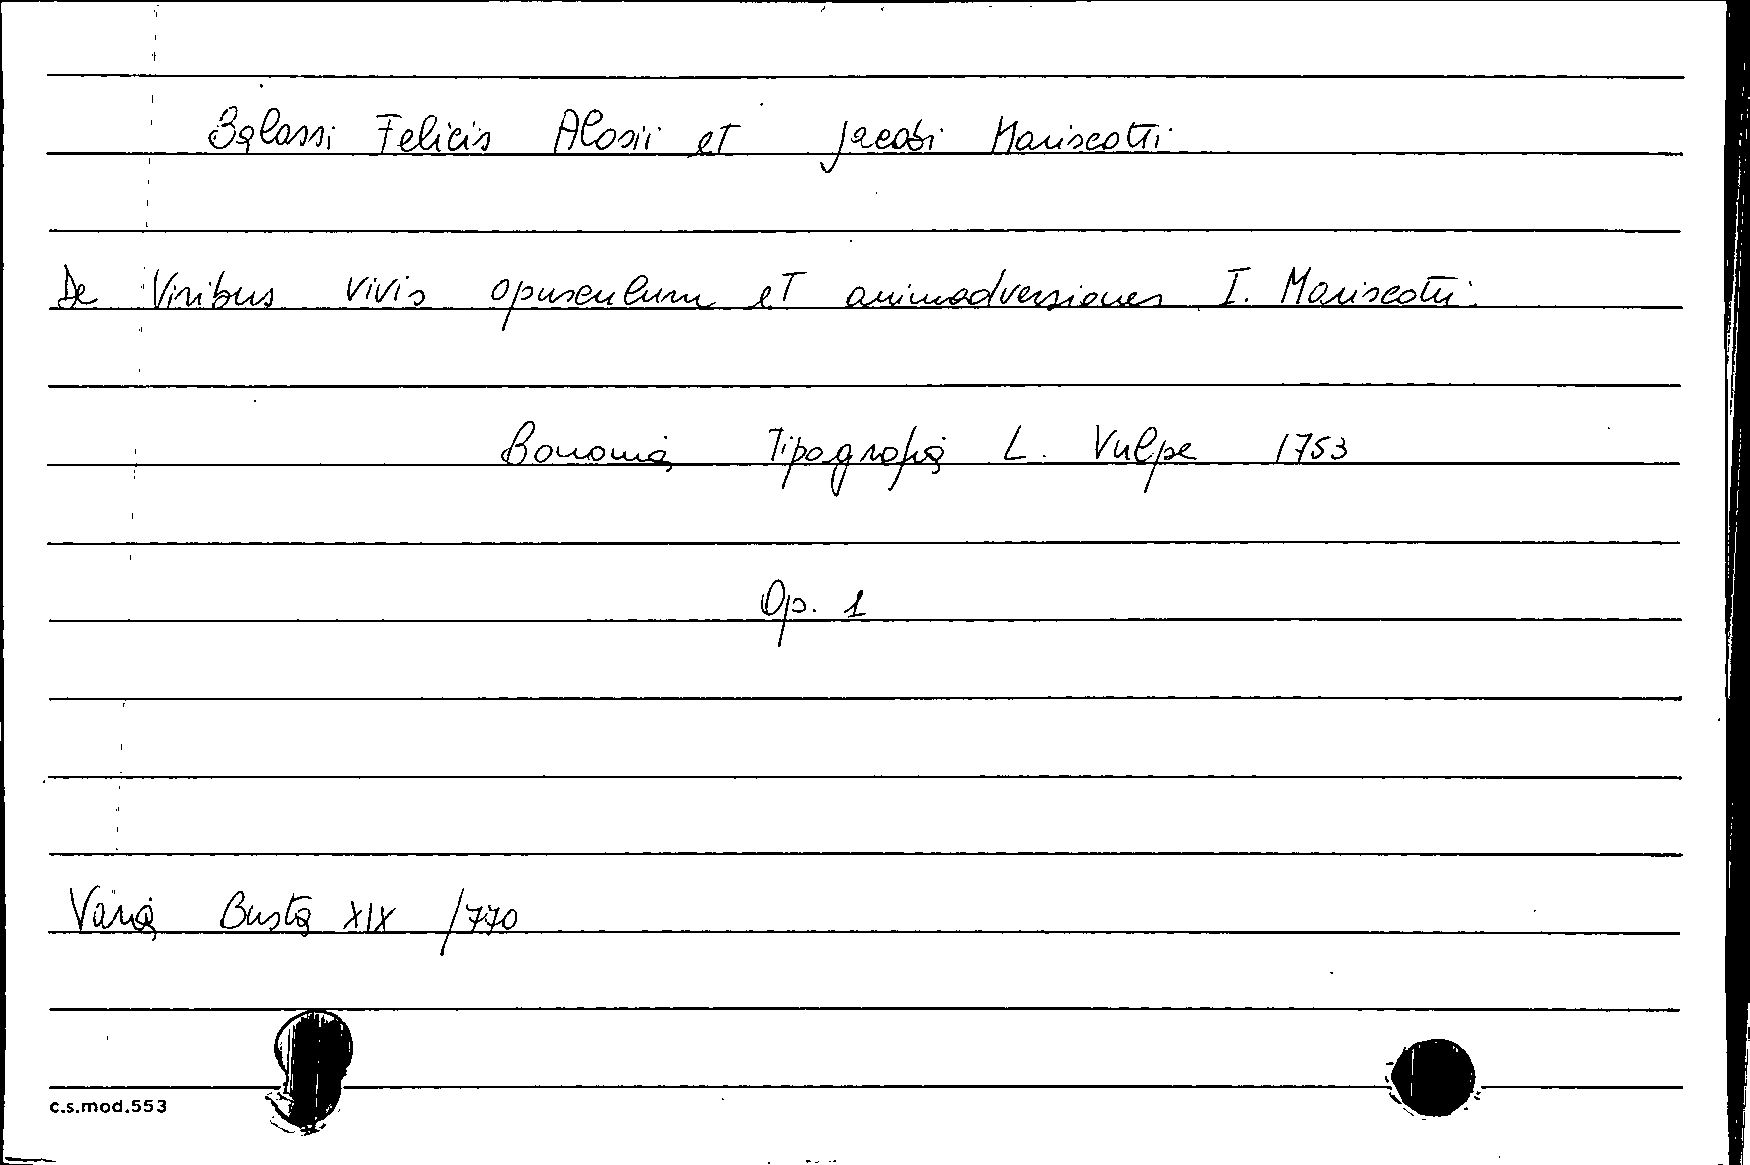 Balassi Felicis Alosii et Jacobi Mariscotti
De Viribus vivis opusculum et animadversiones I. Mariscotti
Bononia Tipografia L. Vulpe 1753
Op. 1
Varia Busta XIX /770
c.s.mod.553